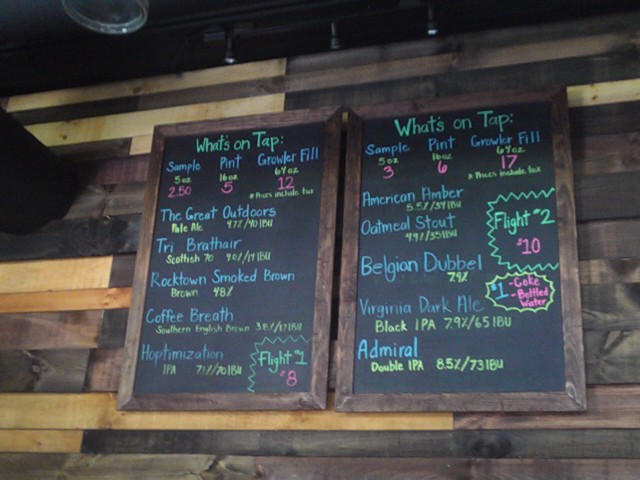 What's on Tap:
Sample Pint Growler Fill
5oz 16oz 64oz
2.50 5 12
* Prices include tax
The Great Outdoors
Pale Ale 4.7%/40IBU
Tri Brathair
Scottish 70 4.0%/19IBU
Rocktown Smoked Brown
Brown 4.8%
Coffee Breath
Southern English Brown 3.8%/17IBU
Hoptimization
IPA 7.1%/70IBU
Flight #1
$8
What's on Tap:
Sample Pint Growler Fill
5oz 16oz 64oz
3 6 17
* Prices include tax
American Amber
5.5%/39IBU
Oatmeal Stout
4.9%/35IBU
Flight #2
$10
Belgian Dubbel
7.9%
$1 -Coke
-Bottled
Water
Virginia Dark Ale
Black IPA 7.9%/65IBU
Admiral
Double IPA 8.5%/73IBU